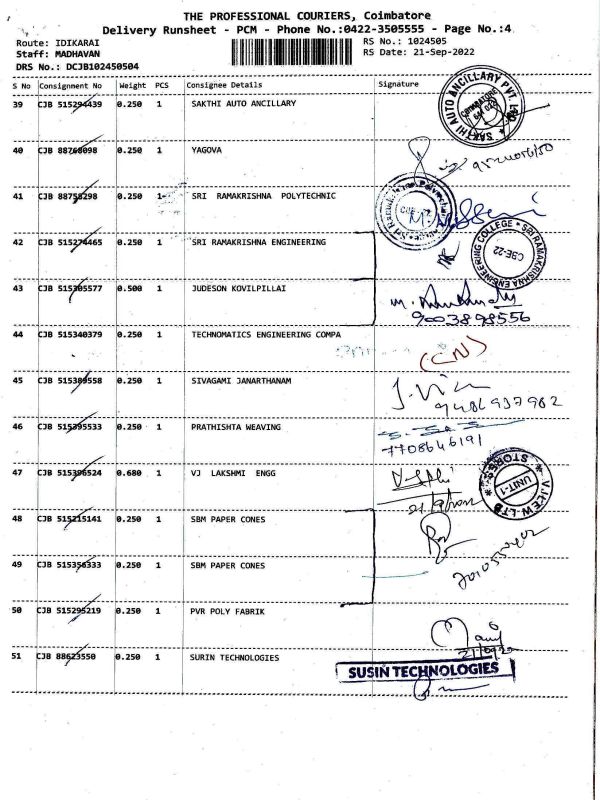 THE PROFESSIONAL COURIERS, Coimbatore
Delivery Runsheet - PCM - Phone No.:0422-3505555 - Page No.:4
Route: IDIKARAI RS No.: 1024505
Staff: MADHAVAN RS Date: 21-Sep-2022
DRS No.: DCJB102450504
S No Consignment No Weight PCS Consignee Details Signature
39 CJB 515294439 0.250 1 SAKTHI AUTO ANCILLARY
SAKTHI AUTO ANCILLARY PVT. LTD. COIMBATORE
40 CJB 88768098 0.250 1 YAGOVA
41 CJB 88758298 0.250 1 SRI RAMAKRISHNA POLYTECHNIC
42 CJB 515274465 0.250 1 SRI RAMAKRISHNA ENGINEERING
SRI RAMAKRISHNA ENGINEERING COLLEGE CBE-22
43 CJB 515305577 0.500 1 JUDESON KOVILPILLAI
9003898556
44 CJB 515340379 0.250 1 TECHNOMATICS ENGINEERING COMPA
(CN)
45 CJB 515389558 0.250 1 SIVAGAMI JANARTHANAM
9486937982
46 CJB 515395533 0.250 1 PRATHISHTA WEAVING
7708646191
47 CJB 515396524 0.680 1 VJ LAKSHMI ENGG
STORES UNIT-1
48 CJB 515215141 0.250 1 SBM PAPER CONES
49 CJB 515356333 0.250 1 SBM PAPER CONES
50 CJB 515295219 0.250 1 PVR POLY FABRIK
51 CJB 88623550 0.250 1 SURIN TECHNOLOGIES
SUSIN TECHNOLOGIES